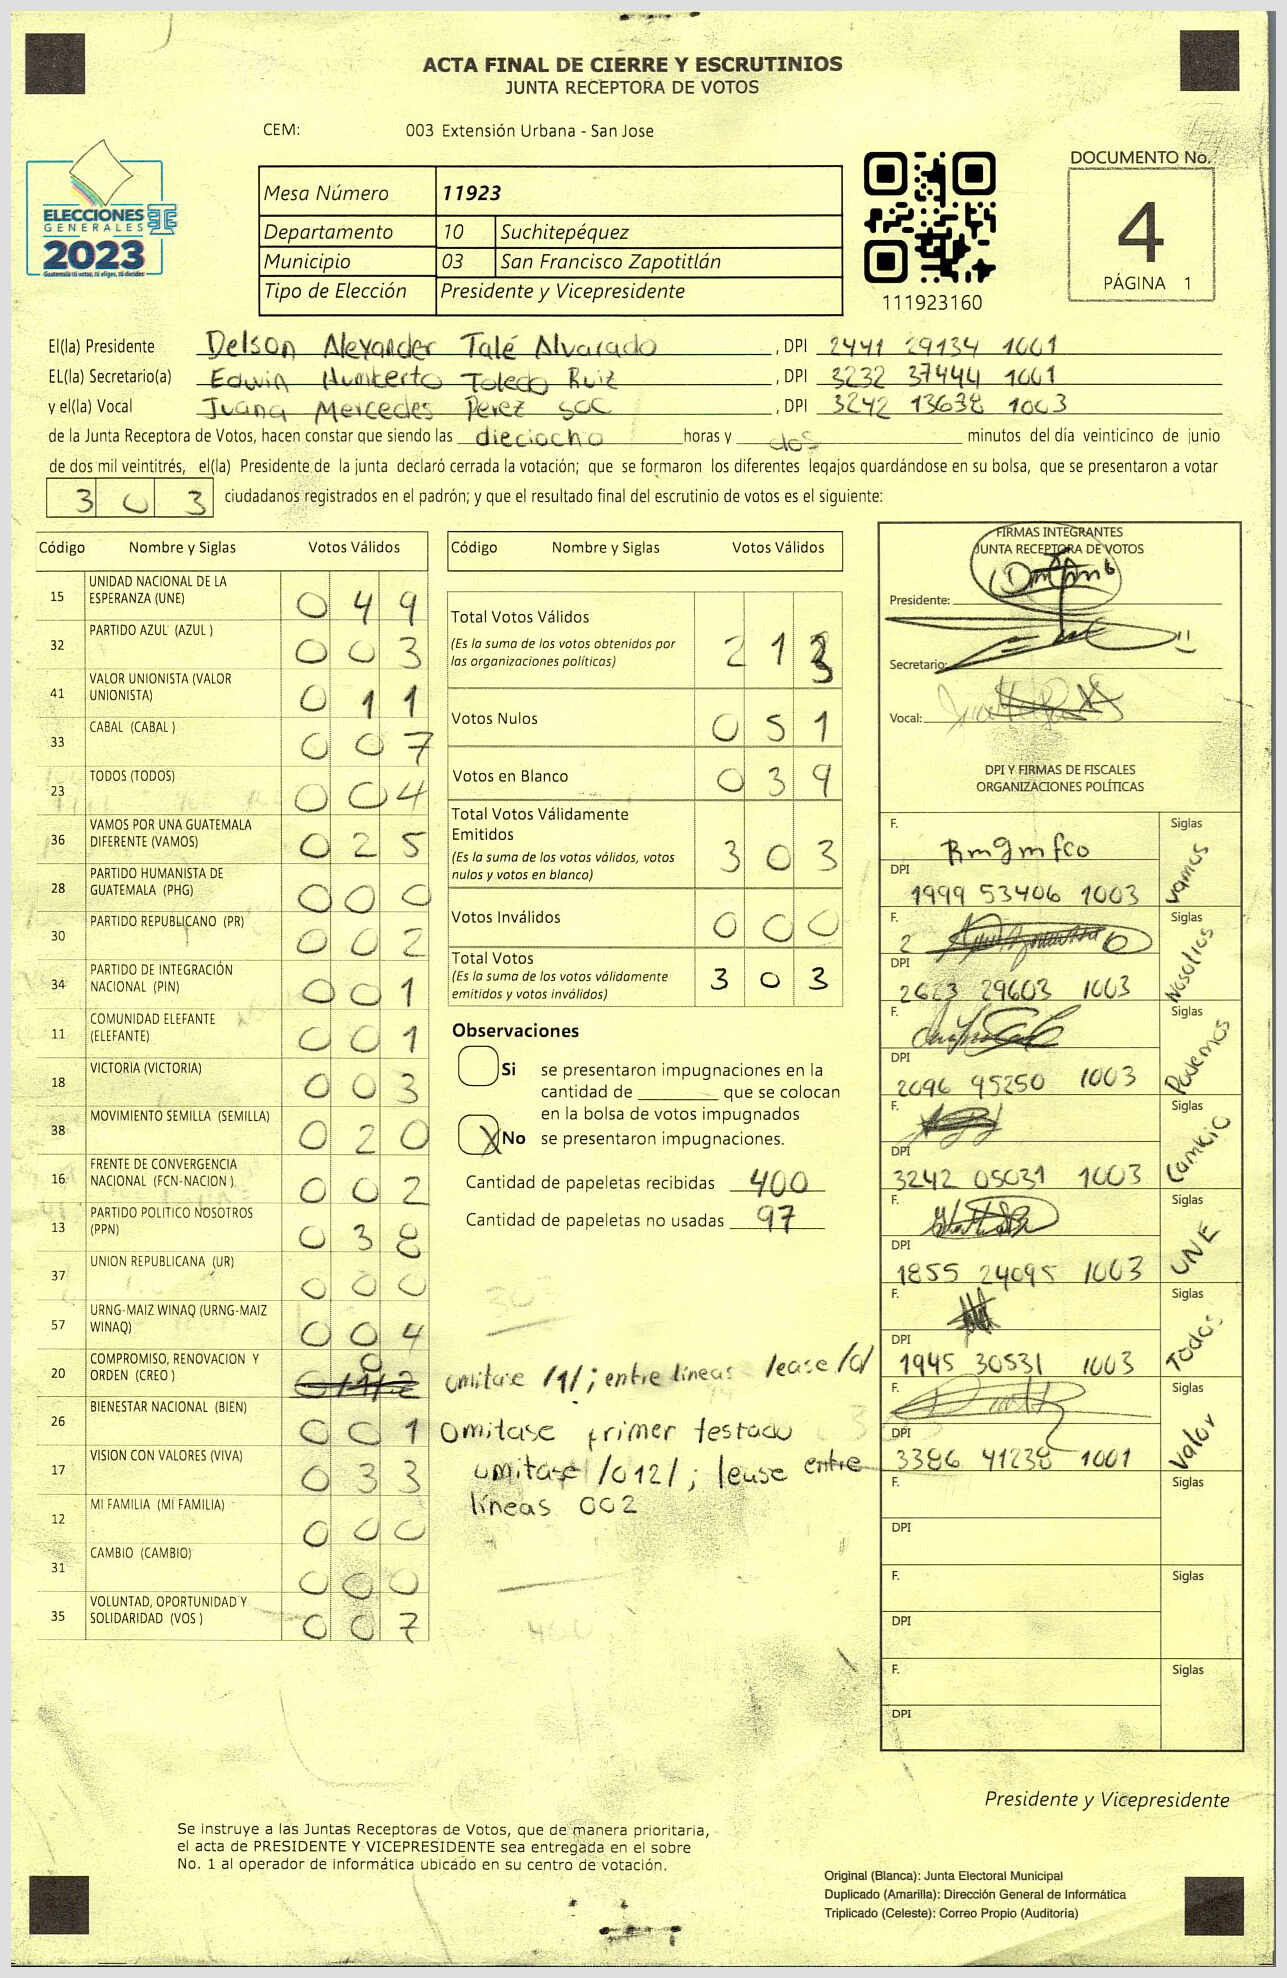 ACTA FINAL DE CIERRE Y ESCRUTINIOS
JUNTA RECEPTORA DE VOTOS
CEM: 003 Extensión Urbana - San Jose
ELECCIONES
GENERALES
2023
Guatemala tú votas, tú eliges, tú decides
Mesa Número 11923
Departamento 10 Suchitepéquez
Municipio 03 San Francisco Zapotitlán
Tipo de Elección Presidente y Vicepresidente
111923160
DOCUMENTO No.
4
PÁGINA 1
El(la) Presidente Delson Alexander Talé Alvarado , DPI 2441 29134 1001
EL(la) Secretario(a) Edwin Humberto Toledo Ruiz , DPI 3232 37444 1001
y el(la) Vocal Juana Mercedes Perez soc , DPI 3242 13638 1003
de la Junta Receptora de Votos, hacen constar que siendo las dieciocho horas y dos minutos del día veinticinco de junio
de dos mil veintitrés, el(la) Presidente de la junta declaró cerrada la votación; que se formaron los diferentes legajos guardándose en su bolsa, que se presentaron a votar
303 ciudadanos registrados en el padrón; y que el resultado final del escrutinio de votos es el siguiente:
Código Nombre y Siglas Votos Válidos
15 UNIDAD NACIONAL DE LA ESPERANZA (UNE) 0 4 9
32 PARTIDO AZUL (AZUL ) 0 0 3
41 VALOR UNIONISTA (VALOR UNIONISTA) 0 1 1
33 CABAL (CABAL ) 0 0 7
23 TODOS (TODOS) 0 0 4
36 VAMOS POR UNA GUATEMALA DIFERENTE (VAMOS) 0 2 5
28 PARTIDO HUMANISTA DE GUATEMALA (PHG) 0 0 0
30 PARTIDO REPUBLICANO (PR) 0 0 2
34 PARTIDO DE INTEGRACIÓN NACIONAL (PIN) 0 0 1
11 COMUNIDAD ELEFANTE (ELEFANTE) 0 0 1
18 VICTORIA (VICTORIA) 0 0 3
38 MOVIMIENTO SEMILLA (SEMILLA) 0 2 0
16 FRENTE DE CONVERGENCIA NACIONAL (FCN-NACION ) 0 0 2
13 PARTIDO POLITICO NOSOTROS (PPN) 0 3 8
37 UNION REPUBLICANA (UR) 0 0 0
57 URNG-MAIZ WINAQ (URNG-MAIZ WINAQ) 0 0 4
20 COMPROMISO, RENOVACION Y ORDEN (CREO ) 0 0/1/2 omitase /1/; entre líneas lease /0/
26 BIENESTAR NACIONAL (BIEN) 0 0 1 Omitase primer testado
17 VISION CON VALORES (VIVA) 0 3 3 omitase /012/; lease entre
líneas 002
12 MI FAMILIA (MI FAMILIA) 0 0 0
31 CAMBIO (CAMBIO) 0 0 0
35 VOLUNTAD, OPORTUNIDAD Y SOLIDARIDAD (VOS ) 0 0 7
Código Nombre y Siglas Votos Válidos
Total Votos Válidos 2 1 3
(Es la suma de los votos obtenidos por
las organizaciones políticas)
Votos Nulos 0 5 1
Votos en Blanco 0 3 9
Total Votos Válidamente
Emitidos 3 0 3
(Es la suma de los votos válidos, votos
nulos y votos en blanco)
Votos Inválidos 0 0 0
Total Votos 3 0 3
(Es la suma de los votos válidamente
emitidos y votos inválidos)
Observaciones
Si se presentaron impugnaciones en la
cantidad de ________ que se colocan
en la bolsa de votos impugnados
X No se presentaron impugnaciones.
Cantidad de papeletas recibidas 400
Cantidad de papeletas no usadas 97
FIRMAS INTEGRANTES
JUNTA RECEPTORA DE VOTOS
Presidente:
Secretario:
Vocal:
DPI Y FIRMAS DE FISCALES
ORGANIZACIONES POLÍTICAS
F. Siglas Vamos
DPI 1999 53406 1003
F. Siglas Nosotros
DPI 2623 29603 1003
F. Siglas Podemos
DPI 2096 95250 1003
F. Siglas Cambio
DPI 3242 05031 1003
F. Siglas UNE
DPI 1855 24095 1003
F. Siglas Todos
DPI 1945 30531 1003
F. Siglas Valor
DPI 3386 41238 1001
F. Siglas
DPI
F. Siglas
DPI
F. Siglas
DPI
Presidente y Vicepresidente
Se instruye a las Juntas Receptoras de Votos, que de manera prioritaria,
el acta de PRESIDENTE Y VICEPRESIDENTE sea entregada en el sobre
No. 1 al operador de informática ubicado en su centro de votación.
Original (Blanca): Junta Electoral Municipal
Duplicado (Amarilla): Dirección General de Informática
Triplicado (Celeste): Correo Propio (Auditoría)